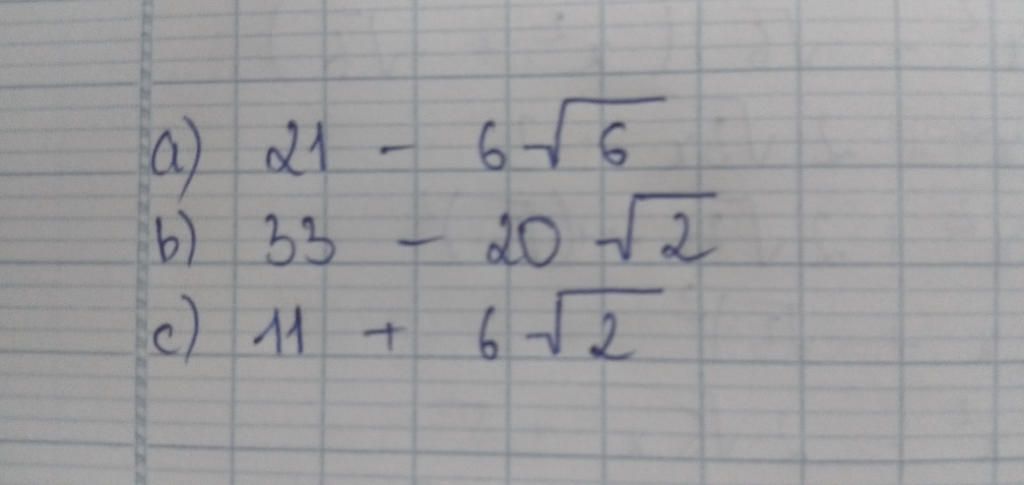 a) 21 - 6√6
b) 33 - 20√2
c) 11 + 6√2